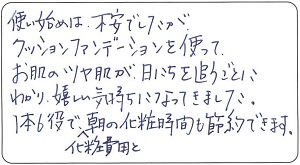 使い始めは、不安でしたが
クッションファンデーションを使って、
お肌のツヤ肌が、日にちを追うごとに
わかり、嬉しい気持ちになってきました。
1本6役で、朝の化粧時間も節約できます。
化粧費用と